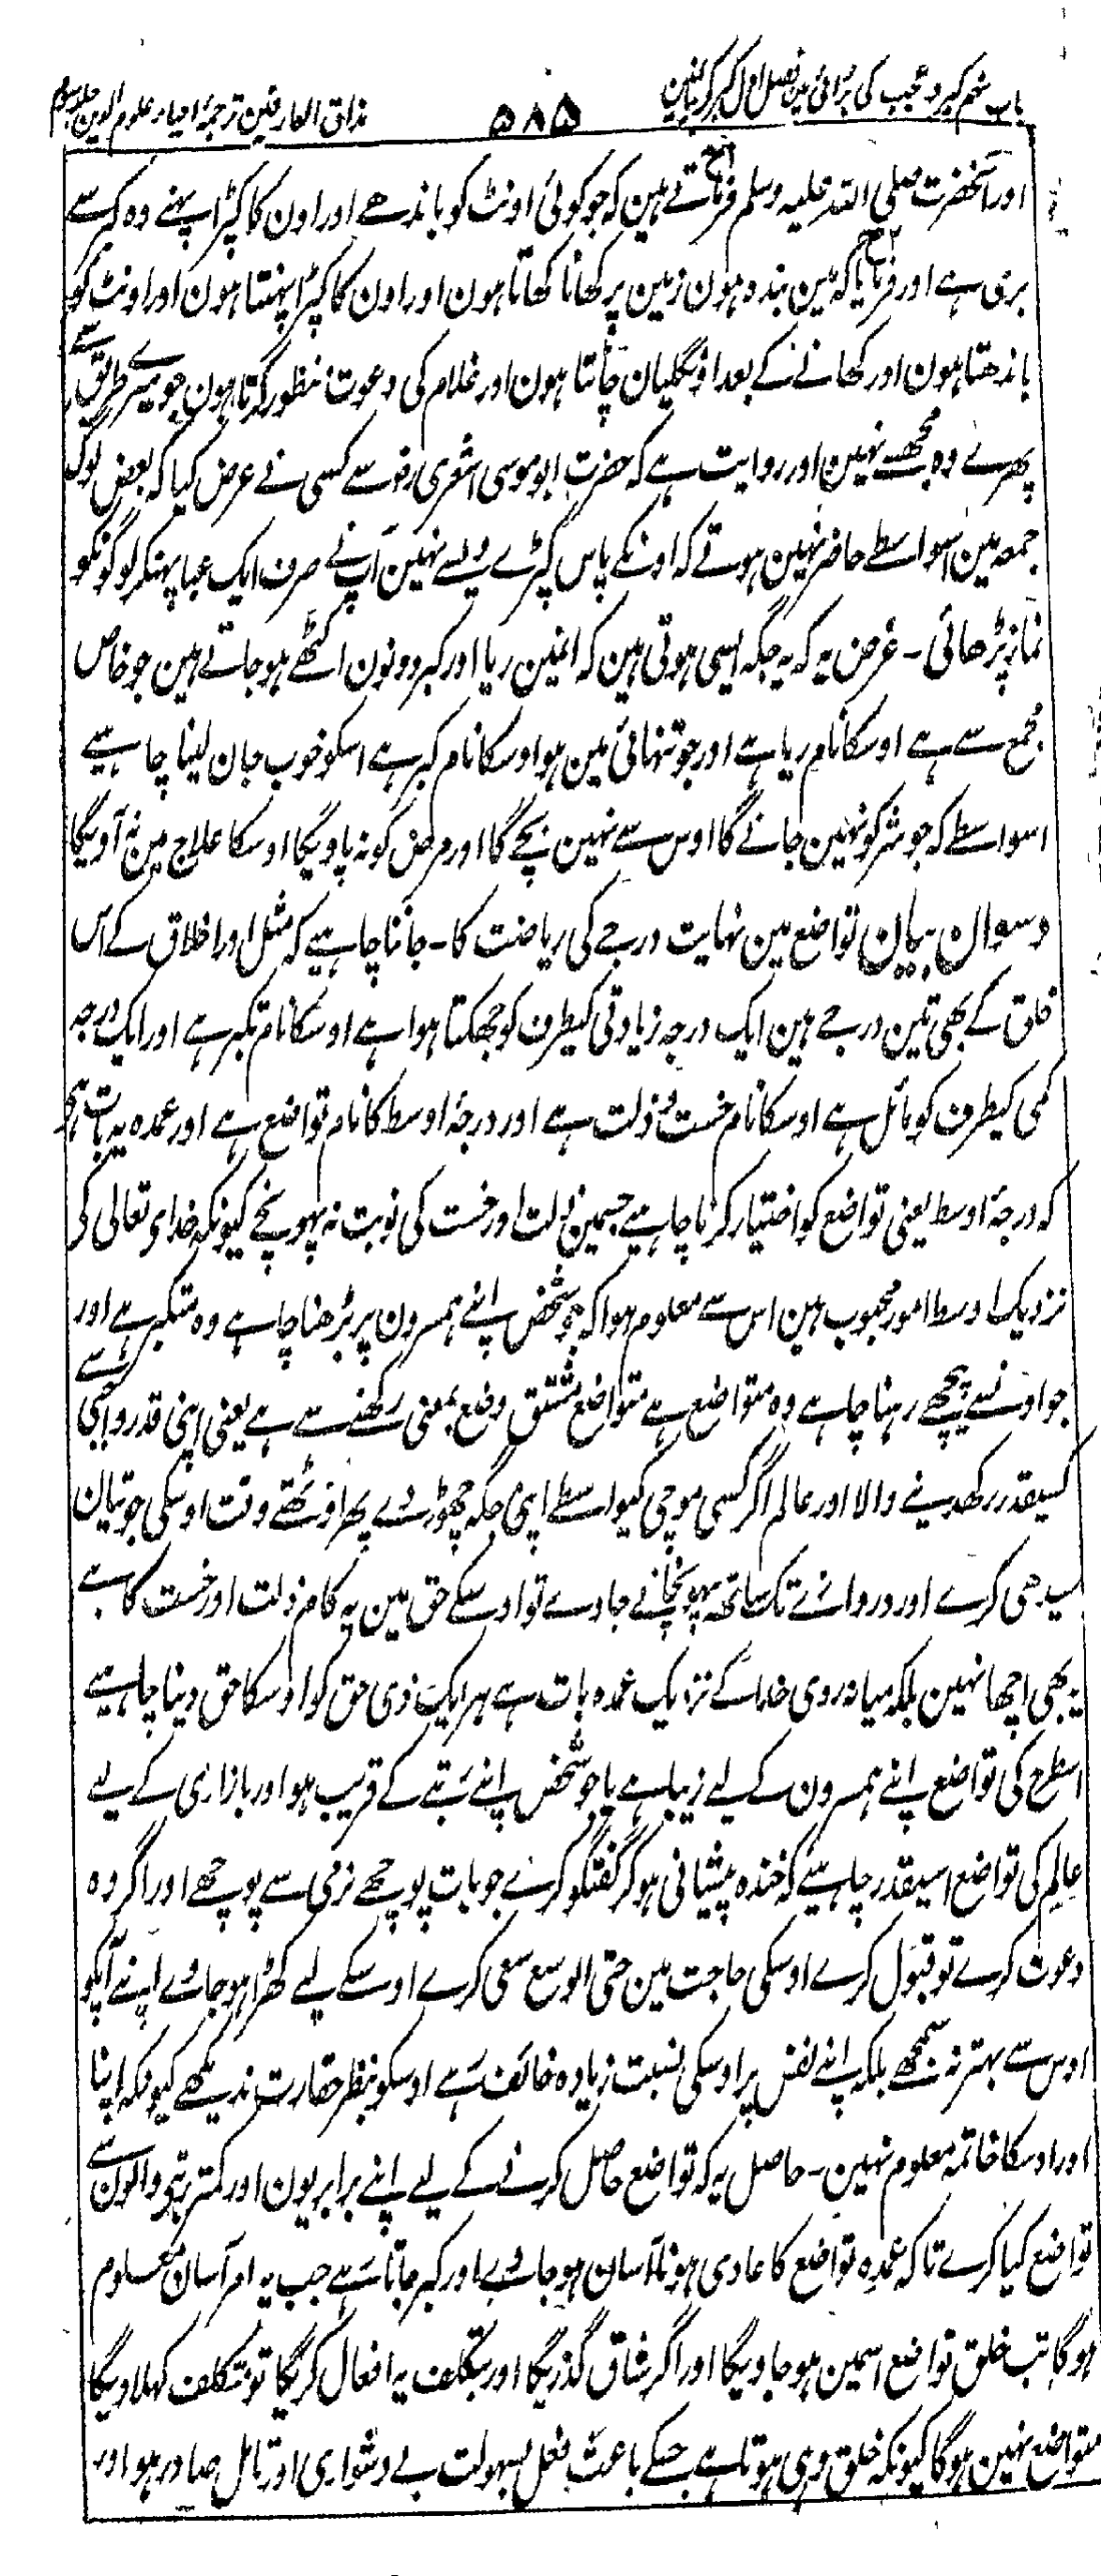 باب نہم کبر و عجب کی برائی مین فصل اول کبر کے بیان مین
۵۸۵
مذاق العارفین ترجمۂ احیاء علوم الدین جلد سوم
اور آنحضرت صلی اللہ علیہ وسلم فرماتے ہین کہ جو کوئی اونٹ کو باندھے اور اون کا کپڑا پہنے وہ کبر سے
بری ہے اور فرمایا کہ مین بندہ ہون زمین پر کھانا کھاتا ہون اور اون کا کپڑا پہنتا ہون اور اونٹ کو
باندھتا ہون اور کھانے کے بعد اونگلیان چاٹتا ہون اور غلام کی دعوت منظور کرتا ہون جو میرے طریق سے
پھرے وہ مجھسے نہین اور روایت ہے کہ حضرت ابو موسی اشعری رضہ سے کسی نے عرض کیا کہ بعض لوگ
جمعہ مین اسواسطے حاضر نہین ہوتے کہ اونکے پاس کپڑے ویسے نہین آپ نے صرف ایک عبا پہنکر لوگونکو
نماز پڑھائی ۔ غرض یہ کہ یہ جگہ ایسی ہوتی ہین کہ انمین ریا اور کبر دونون اکٹھے ہوجاتے ہین جو خاص
مجمع سے ہے اوسکا نام ریا ہے اور جو تنہائی مین ہو اوسکا نام کبر ہے اسکو خوب جان لینا چاہیے
اسواسطے کہ جو شر کو نہین جانے گا اوس سے نہین بچے گا اور مرض کو نہ پاویگا اوسکا علاج مین نہ آویگا
دسوان بیان تواضع مین نہایت درجے کی ریاضت کا ۔ جاننا چاہیے کہ مثل اور اخلاق کے اس
خلق کے بھی تین درجے ہین ایک درجہ زیادتی کیطرف کو جھکتا ہوا ہے اوسکا نام تکبر ہے اور ایک درجہ
کمی کیطرف کو مائل ہے اوسکا نام خست و ذلت ہے اور درجۂ اوسط کا نام تواضع ہے اور عمدہ یہ بات ہے
کہ درجۂ اوسط یعنی تواضع کو اختیار کرنا چاہیے جسمین ذلت اور خست کی نوبت نہ پہونچے کیونکہ خدای تعالی کی
نزدیک اوسط امور محبوب ہین اس سے معلوم ہوا کہ جو شخص اپنے ہمسرون پر بڑھنا چاہے وہ متکبر ہے اور
جو اونسے پیچھے رہنا چاہے وہ متواضع ہے متواضع مشتق وضع بمعنی رکھنے سے ہے یعنی اپنی قدر واجبی سے
کسیقدر رکھدینے والا اور عالم اگر کسی موچی کیواسطے اپنی جگہ چھوڑ دے پھر اوٹھتے وقت اوسکی جوتیان
سیدھی کرے اور دروازے تک ساتھہ پہونچانے جاوے تو اوسکے حق مین یہ کام ذلت اور خست کا ہے
یہ بھی اچھا نہین بلکہ میانہ روی خدا کے نزدیک عمدہ بات ہے ہر ایک ذی حق کو اوسکا حق دینا چاہیے
اسطرح کی تواضع اپنے ہمسرون کے لیے زیبا ہے یا جو شخص اپنے رتبے کے قریب ہو اور بازاری کے لیے
عالم کی تواضع اسیقدر چاہیے کہ خندہ پیشانی ہو کر گفتگو کرے جو بات پوچھے نرمی سے پوچھے اور اگر وہ
دعوت کرے تو قبول کرے اوسکی حاجت مین حتی الوسع سعی کرے اوسکے لیے کھڑا ہوجاے اپنے آپکو
اوس سے بہتر نہ سمجھے بلکہ اپنے نفس پر اوسکی نسبت زیادہ خائف رہے اوسکو بنظر حقارت ندیکھے کیونکہ اپنا
اور اوسکا خاتمہ معلوم نہین ۔ حاصل یہ کہ تواضع حاصل کرنے کے لیے اپنے برابریون اور کمتر رتبہ والون سے
تواضع کیا کرے تاکہ عمدہ تواضع کا عادی ہونا آسان ہوجاے اور کبر جاتا رہے جب یہ امر آسان معلوم
ہوگا تب خلق تواضع اسمین ہوجاویگا اور اگر شاق گذریگا اور بتکلف یہ افعال کریگا تو متکلف کہلاویگا
متواضع نہین ہوگا کیونکہ خلق وہی ہوتا ہے جسکے باعث فعل بسہولت بے دشواری اور تامل صادر ہو اور